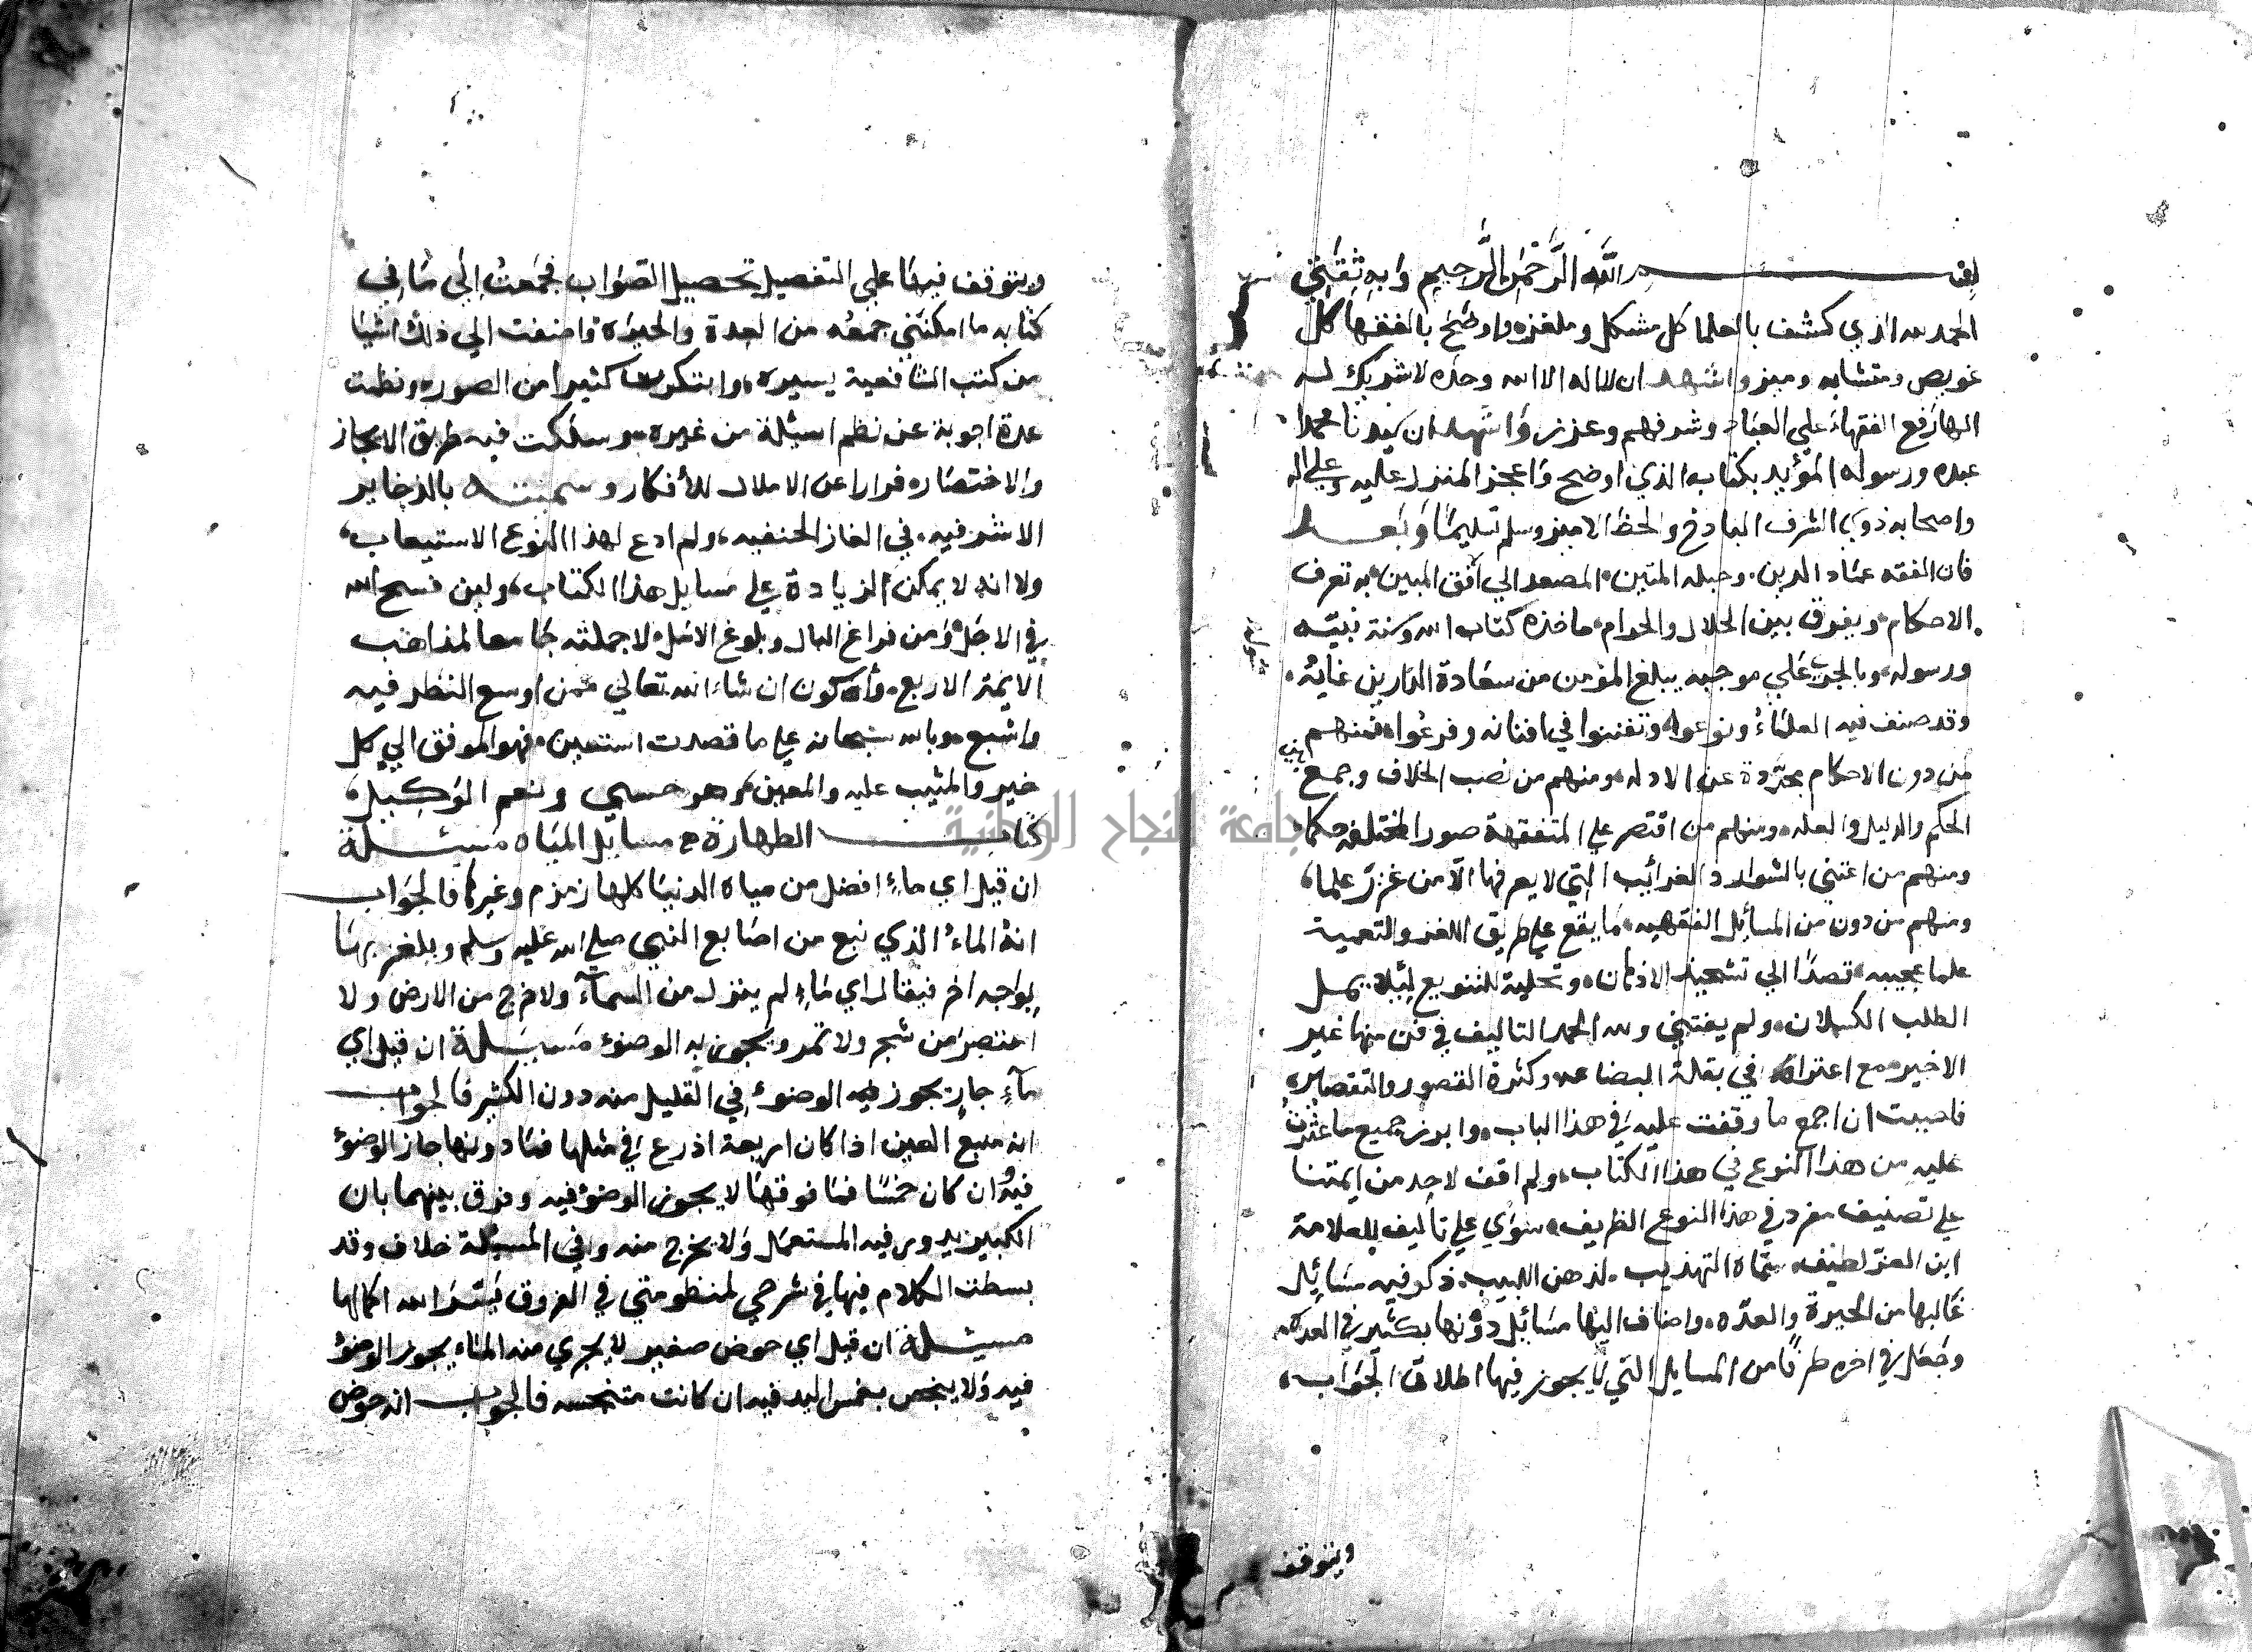 بسم الله الرحمن الرحيم وبه ثقتي
الحمد لله الذي كشف بالعلما كل مشكل وملغز واوضح بالفقها كل
عويص ومتشابه وميز واشهد ان لا اله الا الله وحده لا شريك له
الها رفع الفقهاء علي العباد وشرفهم وعزز واشهد ان سيدنا محمدا
عبده ورسوله المؤيد بكتابه الذي اوضح واعجز المنزل عليه وعلي اله
واصحابه ذوي الشرف الباذخ والحظ الاميز وسلم تسليما وبعد
فان الفقه عماد الدين وحبله المتين المصعد الي افق المبين به تعرف
الاحكام ويفرق بين الحلال والحرام ماخذه كتاب الله وسنة نبيه
ورسوله وبالجري علي موجبه يبلغ المؤمن من سعادة الدارين غايه
وقد صنف فيه العلماء ونوعوا وتفننوا في افنانه وفرعوا فمنهم
من دون الاحكام مجردة عن الادله ومنهم من نصب الخلاف وجمع بين
الحكم والدليل والعله ومنهم من اقتصر علي المتفقهة صور المختلفه حكما
ومنهم من اعتني بالشوارد الغرائب التي لا يعرفها الا من غزر علما
ومنهم من دون من المسائل الفقهيه ما يقع علي طريق اللغز والتعمية
علما عجيبه قصدا الي تشحيذ الاذهان وتحلية للتنويع لئلا يمل
الطلب الكسلان ولم يفتني ولله الحمد التاليف في فن منها غير
الاخير مع اعترافي بقلة البضاعه وكثرة القصور والتقصير
فاحببت ان اجمع ما وقفت عليه في هذا الباب وابرز جميع ما عثرت
عليه من هذا النوع في هذا الكتاب ولم اقف لاحد من ايمتنا
علي تصنيف مفرد في هذا النوع الظريف سوي علي تاليف للعلامة
ابن العز لطيف سماه التهذيب لذهن اللبيب ذكر فيه مسائل
غالبها من الحيرة والعده واضاف اليها مسائل دونها بكثير في العدد
وجعل في اخره طرفا من المسايل التي لا يجوز فيها اطلاق الجواب
ويتوقف
ويتوقف فيها علي التفصيل تحصيل الصواب فجمعت الي ما في
كتابه ما امكنني جمعه من العدة والحيرة واضفت الي ذلك اشيا
من كتب الشافعية يسيره وابتكرت كثيرا من الصور ونظمت
عدة اجوبة عن نظم اسيلة من غيره وسلكت فيه طريق الايجاز
والاختصار فرارا عن الاملال للأفكار وسميته بالذخاير
الاشرفيه في الغاز الحنفيه ولم ادع لهذا النوع الاستيعاب
ولا انه لا يمكن الزيادة علي مسايل هذا الكتاب ولين فسح الله
في الاجل ومن فراغ البال وبلوغ الامل لاجعلته جامعا لمذاهب
الايمة الاربع واكون ان شاء الله تعالي ممن اوسع النظر فيه
واشبع وبالله سبحانه علي ما قصدت استعين فهو الموفق الي كل
خير والمثيب عليه والمعين وهو حسبي ونعم الوكيل
كتاب الطهارة مسايل المياه مسئلة
ان قيل اي ماء افضل من مياه الدنيا كلها زمزم وغيرها فالجواب
انه الماء الذي نبع من اصابع النبي صلي الله عليه وسلم ويلغز بها
بواجه اخر فيقال اي ماء لم ينزل من السماء ولا خرج من الارض ولا
اعتصر من شجر ولا ثمر ويجوز به الوضوء مسئلة ان قيل اي
ماء جار يجوز فيه الوضوء في القليل منه دون الكثير فالجواب
انه منبع العين اذا كان اربعة اذرع في مثلها فما دونها جاز الوضوء
فيه وان كان خمسا فما فوقها لا يجوز الوضوء فيه وفرق بينهما بان
الكبير يدور فيه المستعمل ولا يخرج منه وفي المسئلة خلاف وقد
بسطت الكلام فيها في شرحي لمنظومتي في الفروق يسر الله اكمالها
مسئلة ان قيل اي حوض صغير لا يجري منه الماء يجوز الوضوء
فيه ولا ينجس بغمس اليد فيه ان كانت متنجسه فالجواب انه حوض
جامعة النجاح الوطنية